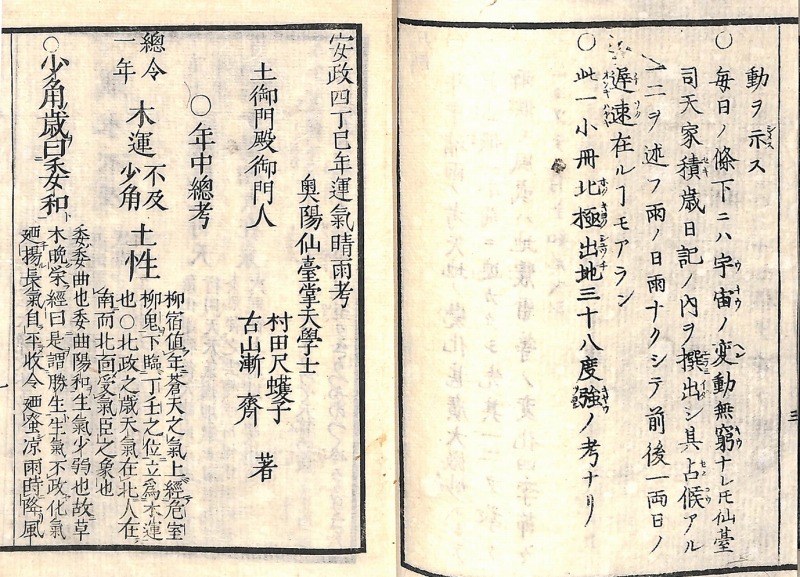 動ヲ示ス
○毎日ノ條下ニハ宇宙ノ変動無窮ナレ𪜈仙臺
司天家積歳日記ノ内ヲ撰出シ具占候アル
一二ヲ述フ雨ノ日雨ナクシテ前後一両日ノ
遅速在ルヿモアラン
○此一小冊北極出地三十八度強ノ考ナリ
三
安政四丁巳年運氣晴雨考
奥陽仙臺掌天學士
土御門殿御門人
村田尺蠖子
古山漸齊
著
○年中總考
總令一年
木運不及少角
土性
柳宿値年蒼天之氣上經危室
柳鬼下臨丁壬之位立爲木運
也○北政之歳天氣在北人在
南而北面受氣臣之象也
○少角歳曰委和
委委曲也委曲陽和生氣少弱也故草
木晩栄經曰是謂勝生生氣不政化氣
廼揚長氣自平收令廼蚤凉雨時降風